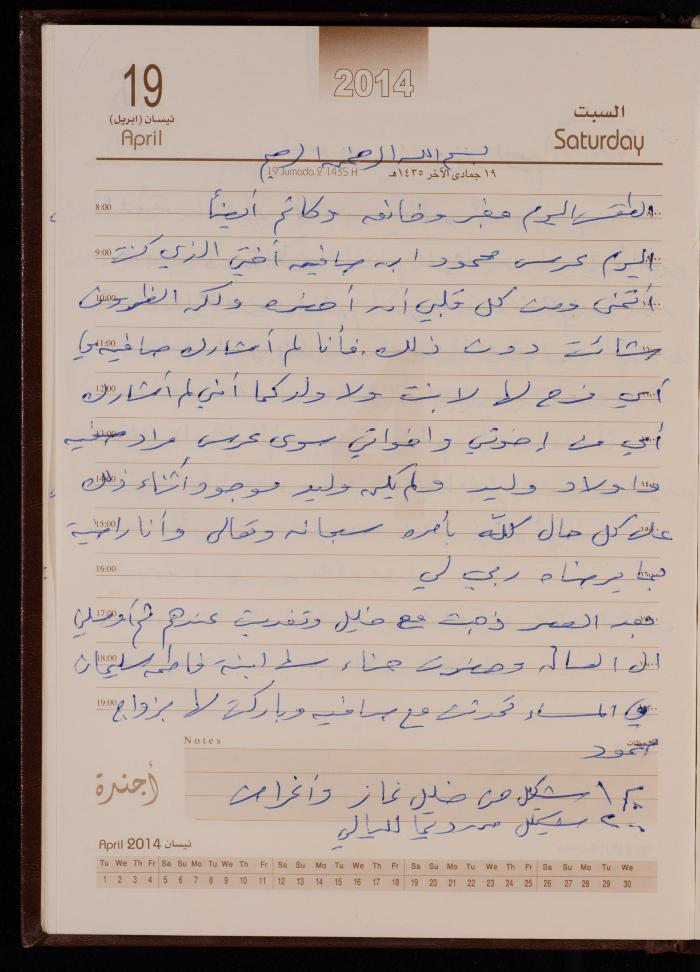 2014
19
نيسان (ابريل)
April
السبت
Saturday
بسم الله الرحمن الرحيم
19 Jumada 2 1435 H
١٩ جمادى الآخر ١٤٣٥هـ
8:00 الطقس اليوم مغبر وخانقه وكاتم أيضاً
9:00 اليوم عرس محمود ابن صافيه أختي الذي كنت
10:00 أتمنى ومن كل قلبي أن أحضره ولكن الظروف
11:00 شائت دون ذلك. فأنا لم أشارك صافيه في
12:00 أي فرح لها لا بنت ولا ولد كما أني لم أشارك
13:00 أي من إخوتي واخواتي سوى عرس مراد صفيه
14:00 واولاد وليد ولم يكن وليد موجود أثناء ذلك
15:00 على كل حال كله بأمره سبحانه وتعالى وأنا راضية
16:00 بما يرضاه ربي لي
17:00 بعد العصر ذهبت مع خليل وتغديت عندهم ثم أوصلني
18:00 الى الصاله وحضرت حناء ابنة فاطمه سليمان
19:00 وفي المساء تحدثت مع صافيه وباركت لها بزواج
محمود
Notes
ملاحظات
أجندة
شيكل من خليل غاز وأغراض
شيكل
April 2014 نيسان
Tu We Th Fr Sa Su Mo Tu We Th Fr Sa Su Mo Tu We Th Fr Sa Su Mo Tu We Th Fr Sa Su Mo Tu We
1 2 3 4 5 6 7 8 9 10 11 12 13 14 15 16 17 18 19 20 21 22 23 24 25 26 27 28 29 30